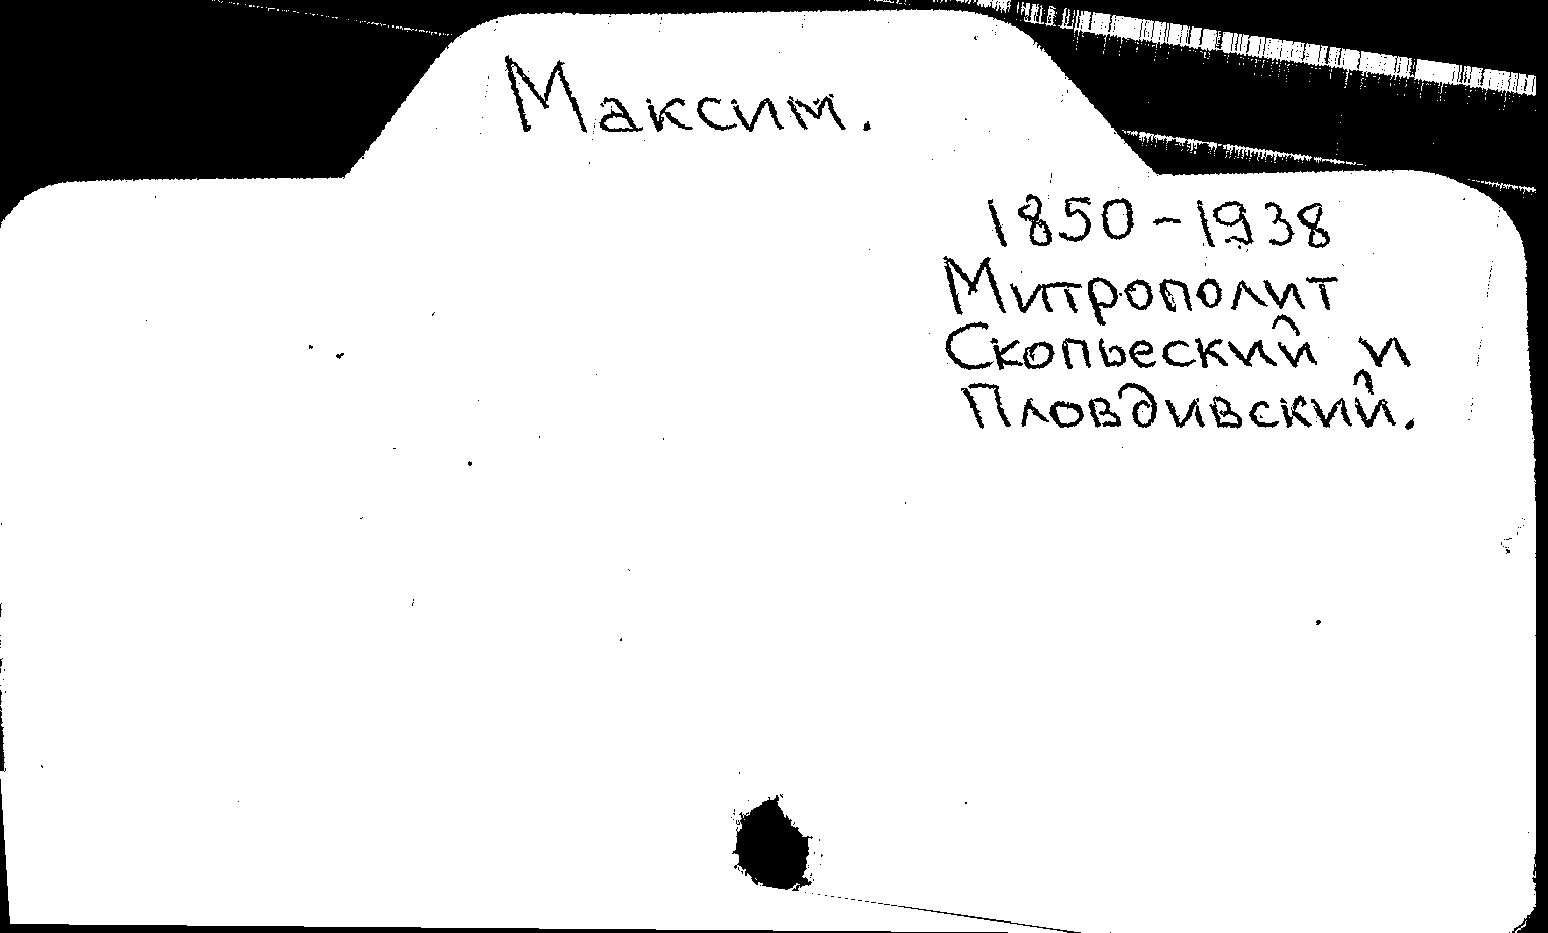 Максим.
1850-1938
Митрополит
Скопьеский и
Пловдивский.